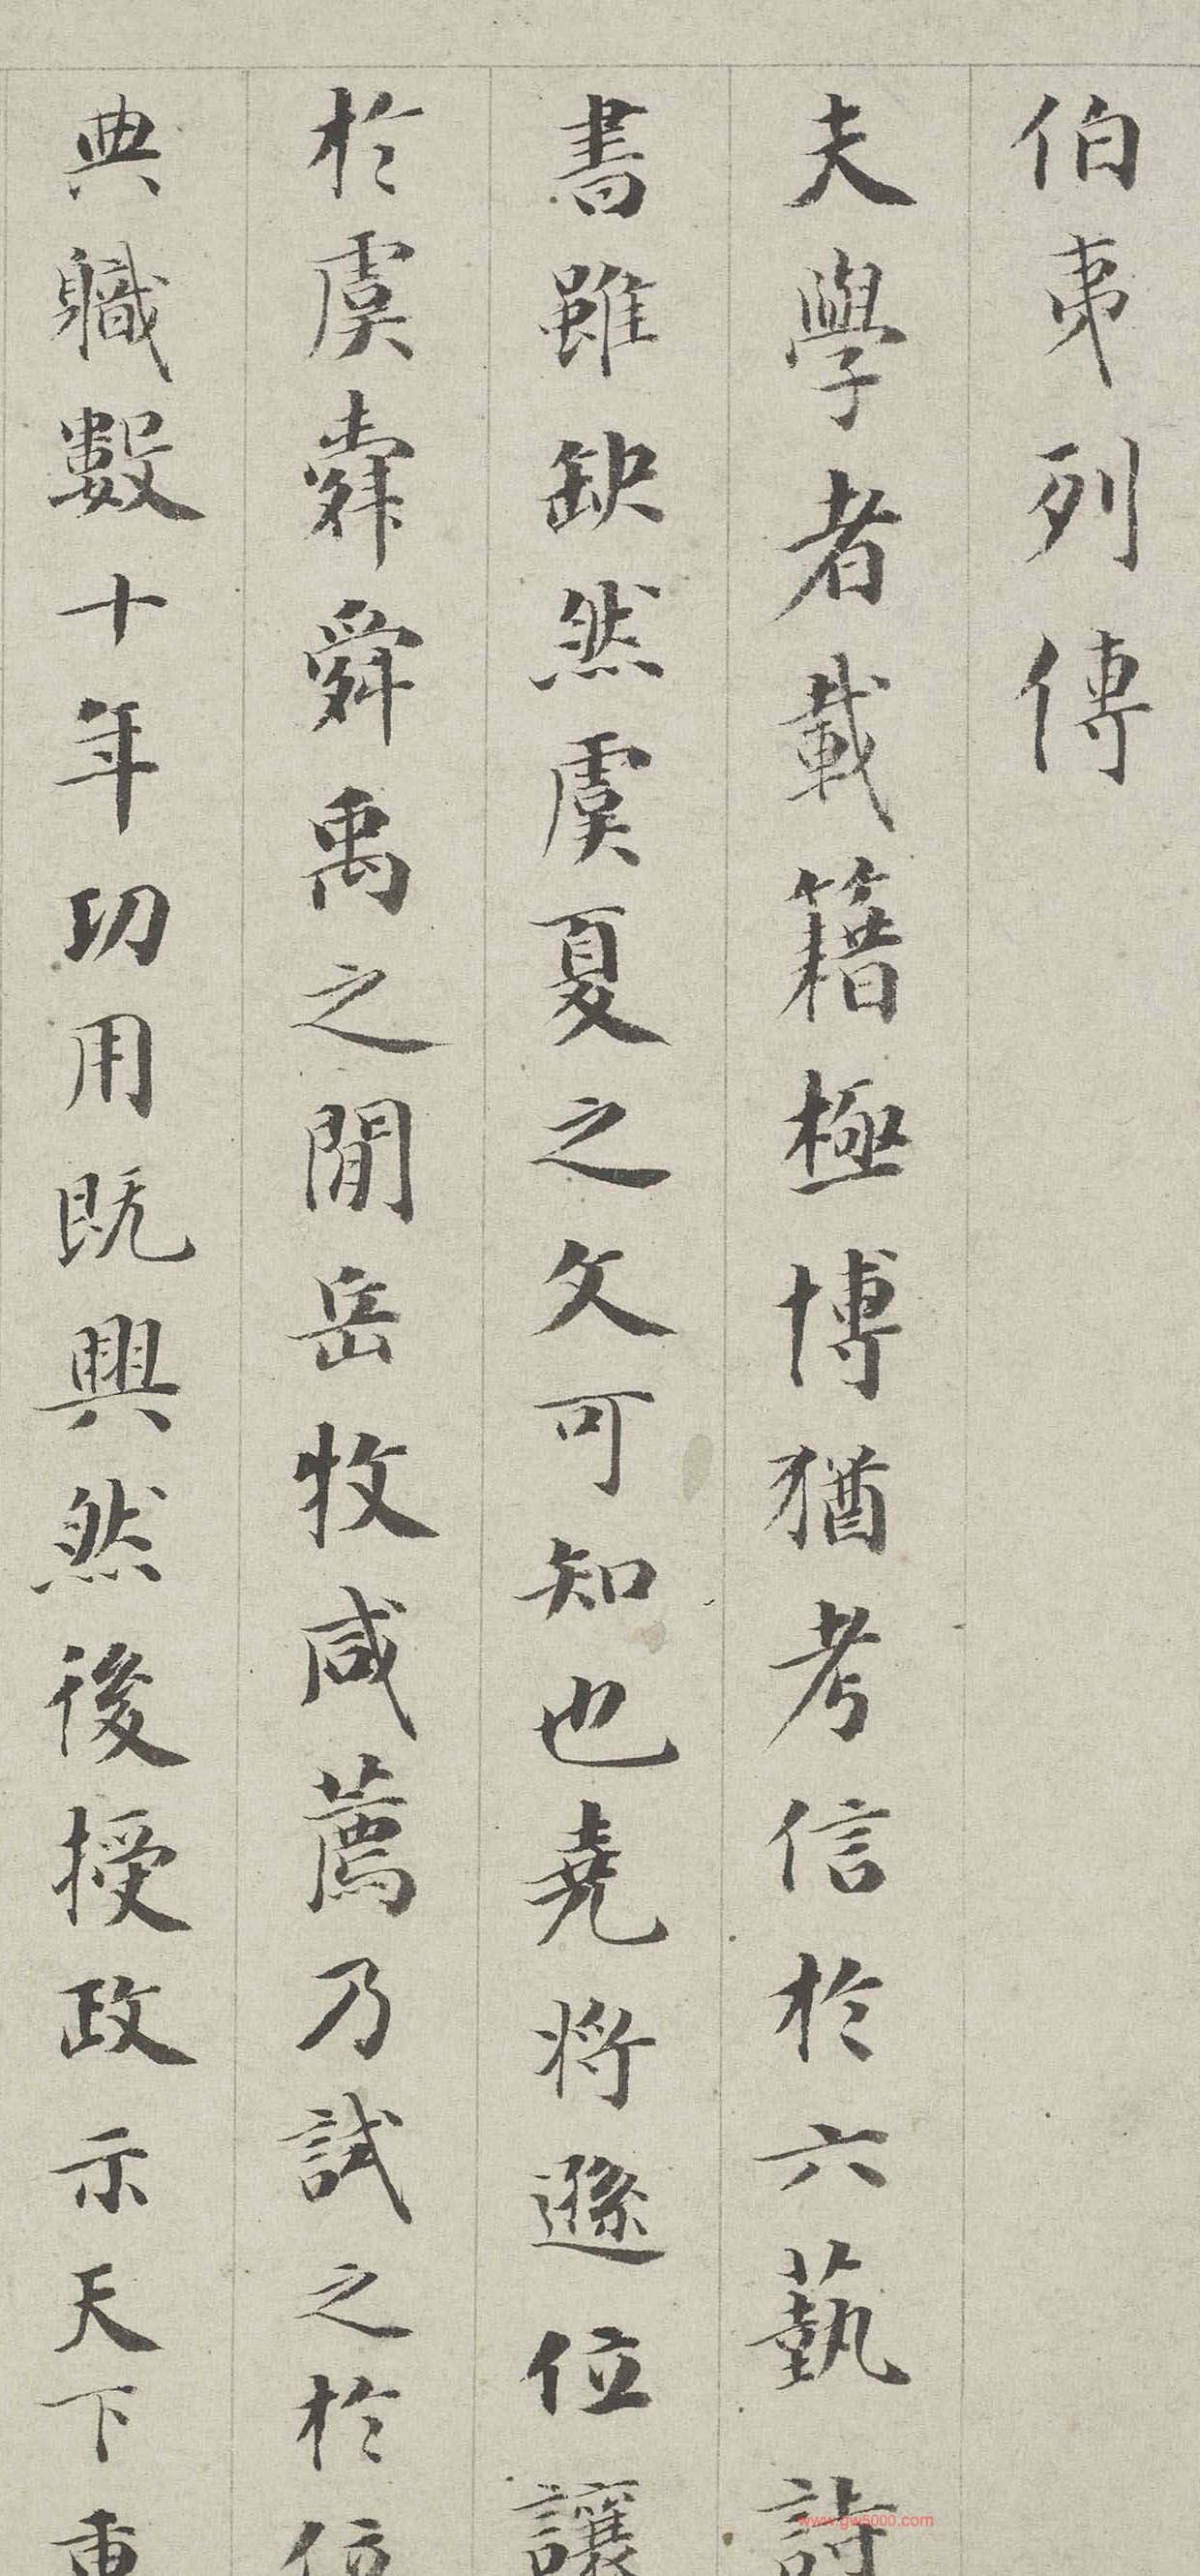 伯夷列傳
夫學者載籍極博猶考信於六藝詩
書雖缺然虞夏之文可知也堯將遜位讓
於虞舜舜禹之閒岳牧咸薦乃試之於位
典職數十年功用既興然後授政示天下重
www.gw5000.com